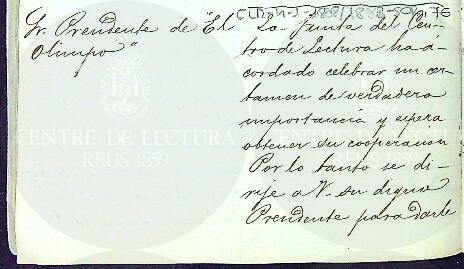 Sr. Presidente de "El
Olimpo"
La Junta del Cen-
tro de Lectura ha a-
cordado celebrar un cer-
tamen de verdadera
importancia y espera
obtener su cooperacion
Por lo tanto se di-
rije a V. su digno
Presidente para darle
CENTRE DE LECTURA
REUS 1859